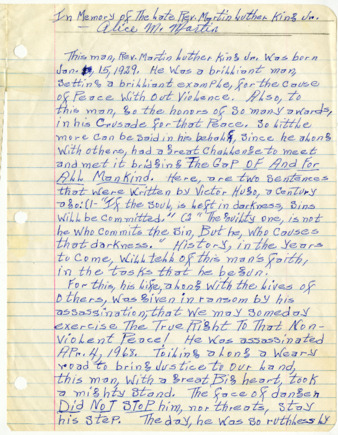 In Memory of The Late Rev. Martin Luther King Jr.
— Alice M. Mastin
This man, Rev. Martin Luther King Jr. Was born
Jan. 15, 1929. He Was a brilliant man,
Setting a brilliant example, for the cause
of Peace With Out Violence. Also, to
this man, go the honors of so many awards,
in his Crusade for that Peace. So little
more Can be said in his behalf, Since he along
With others, had a great Challenge to meet
and met it bridging The Gap OF And For
ALL Mankind. Here, are two sentences
that were Written by Victor Hugo, a Century
ago: (1- "If the soul, is Left in darkness, Sins
Will be Committed." (2 "The guilty one, is not
he Who Commits the Sin, But he, Who Causes
that darkness." History, in the Years
to Come, Will tell of this man's faith,
in the tasks that he begun.
For this, his life, along With the Lives of
Others, Was given in ransom by his
assassination, that We may Someday
exercise The True Right To That Non-
Violent Peace! He Was assassinated
APr. 4, 1968. Toiling along a Weary
road to bring Justice to Our Land,
this man, With a great Big heart, took
a mighty Stand. The face of danger
Did NoT SToP him, nor threats, Stay
his SteP. The day, he Was So ruthlessly